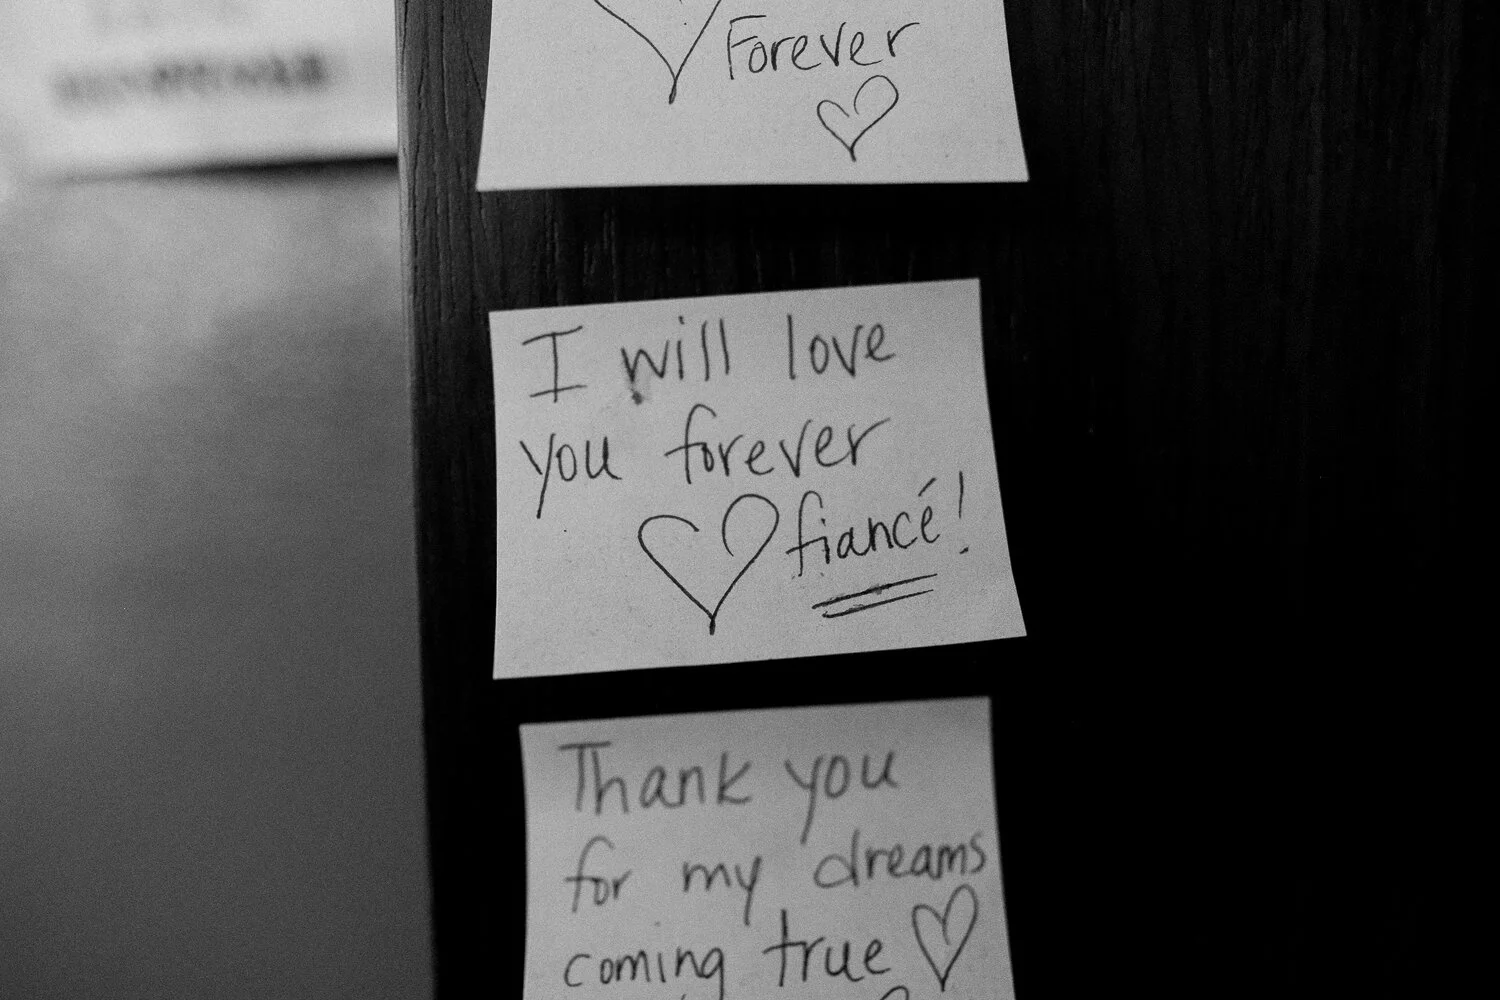 Forever
I will love
you forever
fiancé!
Thank you
for my dreams
coming true